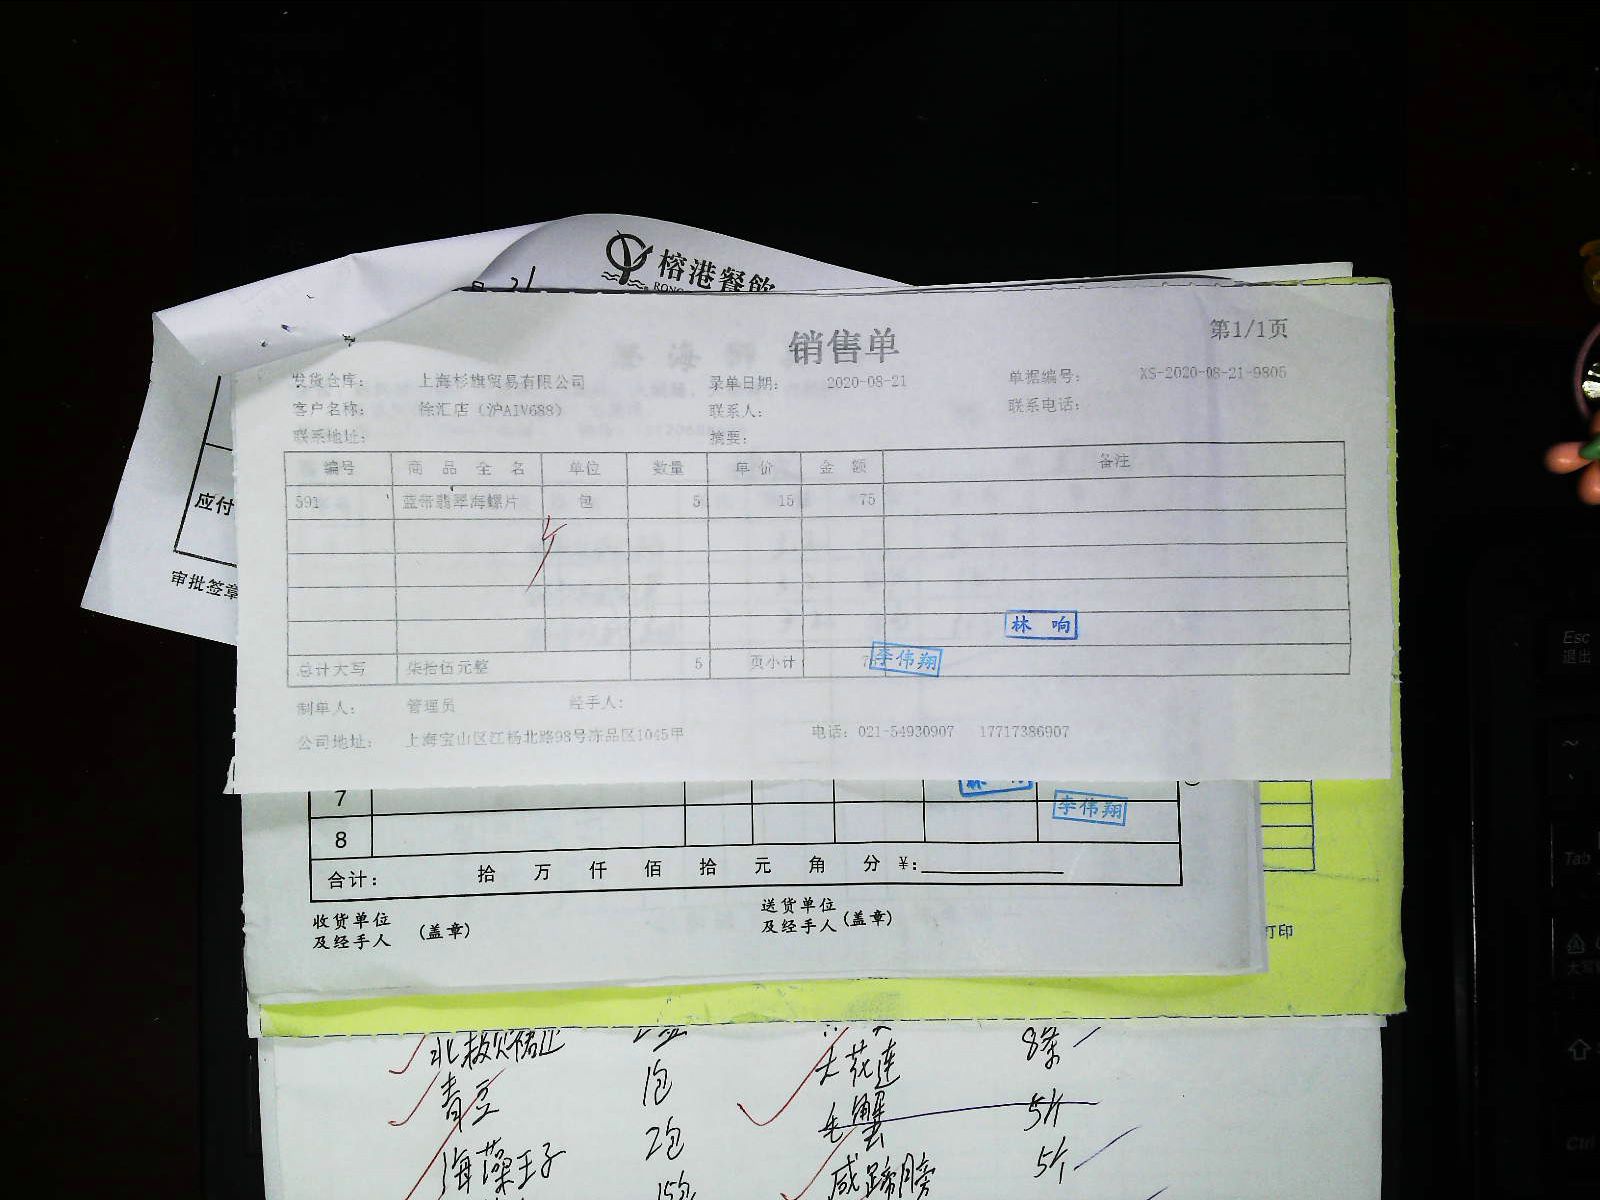 榕港餐饮
21
应付
审批签章
销售单
第1/1页
发货仓库： 上海杉旗贸易有限公司 录单日期： 2020-08-21 单据编号： XS-2020-08-21-9805
客户名称： 徐汇店（沪AIV688） 联系人： 联系电话：
联系地址： 摘要：
编号 商品全名 单位 数量 单价 金额 备注
591 蓝带翡翠海螺片 包 5 15 75
林响
总计大写 柒拾伍元整 5 页小计 李伟翔
制单人： 管理员 经手人：
公司地址： 上海宝山区江杨北路98号冻品区1045甲 电话：021-54930907 17717386907
7
李伟翔
8
合计： 拾 万 仟 佰 拾 元 角 分 ¥：
收货单位及经手人 （盖章） 送货单位及经手人（盖章）
打印
8条
青豆 1包 大花莲
毛蟹 5斤
海藻王子 2包 咸蹄膀 5个
15包
Esc
退出
Tab